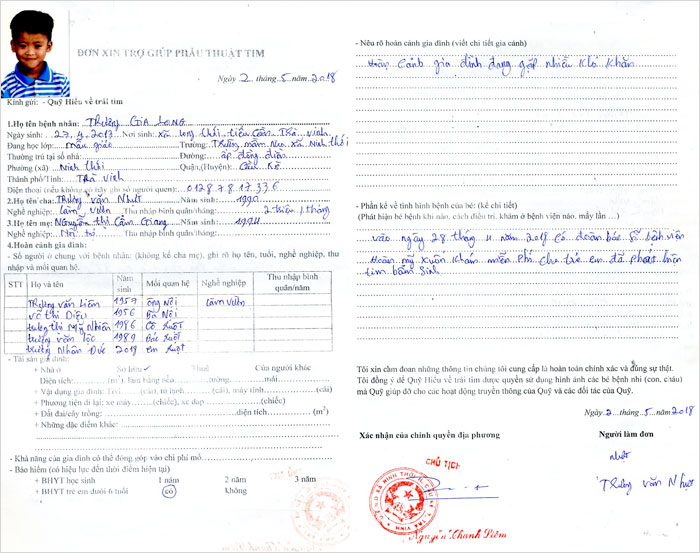 ĐƠN XIN TRỢ GIÚP PHẪU THUẬT TIM
Ngày 2 tháng 5 năm 2018
Kính gửi: - Quỹ Hiểu về trái tim
1.Họ tên bệnh nhân: Trương Gia Long
Ngày sinh: 27.4.2013 Nơi sinh: xã Long Thới, Tiểu Cần, Trà Vinh
Đang học lớp: mẫu giáo Trường: Trường mầm Non xã Ninh Thới
Thường trú tại số nhà: Đường: ấp đồng điền
Phường (xã) Ninh Thới Quận,(Huyện): Cầu Kè
Thành phố/Tỉnh: Trà Vinh
Điện thoại (nếu không có hãy ghi số người quen):
2.Họ tên cha: Trương văn Nhựt Năm sinh: 1990
Nghề nghiệp: làm vườn Thu nhập bình quân/tháng: 2 triệu/tháng
3.Họ tên mẹ: Nguyễn Thị Cẩm Giang Năm sinh: 1994
Nghề nghiệp: Thu nhập bình quân/tháng:
4.Hoàn cảnh gia đình:
- Số người ở chung với bệnh nhân: (không kể cha mẹ), ghi rõ họ tên, tuổi, nghề nghiệp, thu nhập và mối quan hệ.
STT Họ và tên Năm sinh Mối quan hệ Nghề nghiệp Thu nhập bình quân/năm
Trương văn Liêm 1957 Ông Nội làm vườn
võ Thị Diệu 1956 Bà Nội
trương thị Mỹ Nhiên 1986 Cô ruột
trương văn Lộc 1989 Bác ruột
trương Nhân Đức 2018 em ruột
- Tài sản gia đình:
+ Nhà ở Sở hữu Thuê Của người khác
Diện tích: (m²), làm bằng nền tường mái
+ Vật dụng gia đình: Tivi (cái), tủ lạnh (cái), máy tính (cái)
+ Phương tiện đi lại: xe máy (chiếc), xe đạp (chiếc)
+ Đất đai/cây trồng: diện tích (m²)
+ Những đặc điểm khác:
- Khả năng của gia đình có thể đóng góp vào chi phí mổ
- Bảo hiểm (có hiệu lực đến thời điểm hiện tại)
+ BHYT học sinh 1 năm 2 năm 3 năm
+ BHYT trẻ em dưới 6 tuổi có không
- Nêu rõ hoàn cảnh gia đình (viết chi tiết gia cảnh)
Hoàn cảnh gia đình đang gặp nhiều khó khăn
- Phần kể về tình hình bệnh của bé: (kể chi tiết)
(Phát hiện bé bệnh khi nào, cách điều trị, khám ở bệnh viện nào, mấy lần …)
vào ngày 28 tháng 4 năm 2018 có đoàn bác sĩ bệnh viện
Hoàn mỹ xuống khám miễn phí cho trẻ em đã phát hiện
tim bẩm sinh
Tôi xin cam đoan những thông tin chúng tôi cung cấp là hoàn toàn chính xác và đúng sự thật.
Tôi đồng ý để Quỹ Hiểu về trái tim được quyền sử dụng hình ảnh các bé bệnh nhi (con, cháu)
mà Quỹ giúp đỡ cho các hoạt động truyền thông của Quỹ và các đối tác của Quỹ.
Ngày 2 tháng 5 năm 2018
Xác nhận của chính quyền địa phương Người làm đơn
CHỦ TỊCH
nhựt
Trương văn Nhựt
Nguyễn Thanh Liêm